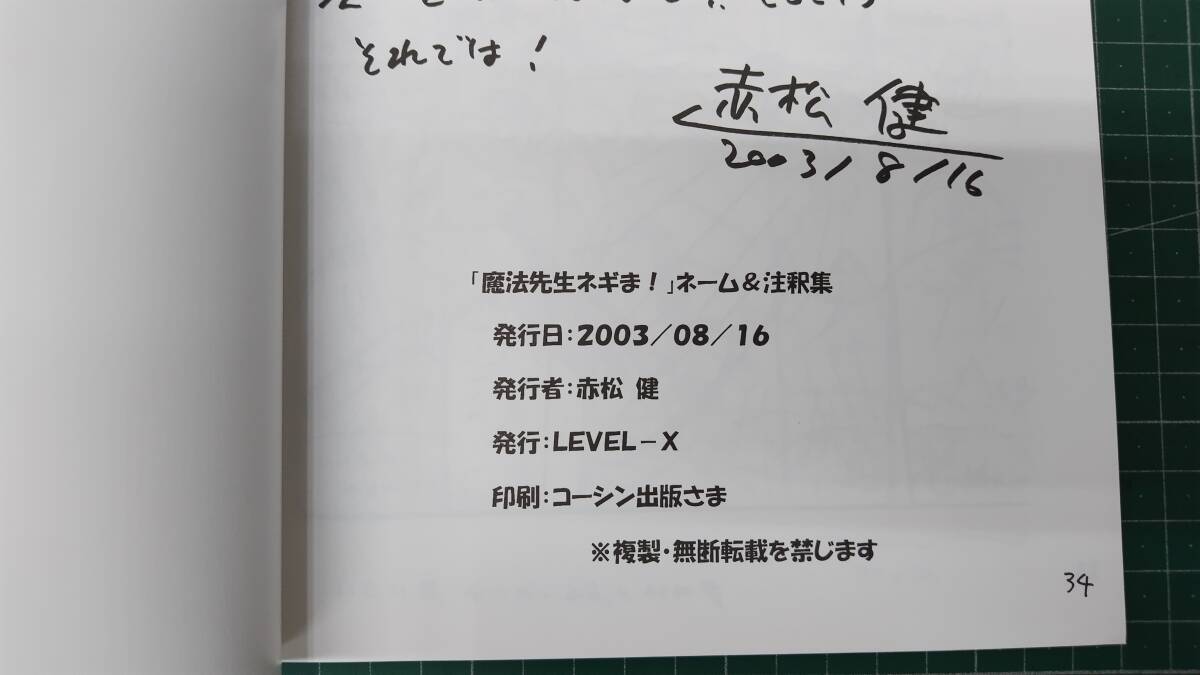 それでは！
赤松 健
2003/8/16
「魔法先生ネギま！」ネーム＆注釈集
発行日：2003／08／16
発行者：赤松 健
発行：LEVEL－X
印刷：コーシン出版さま
※複製・無断転載を禁じます
34